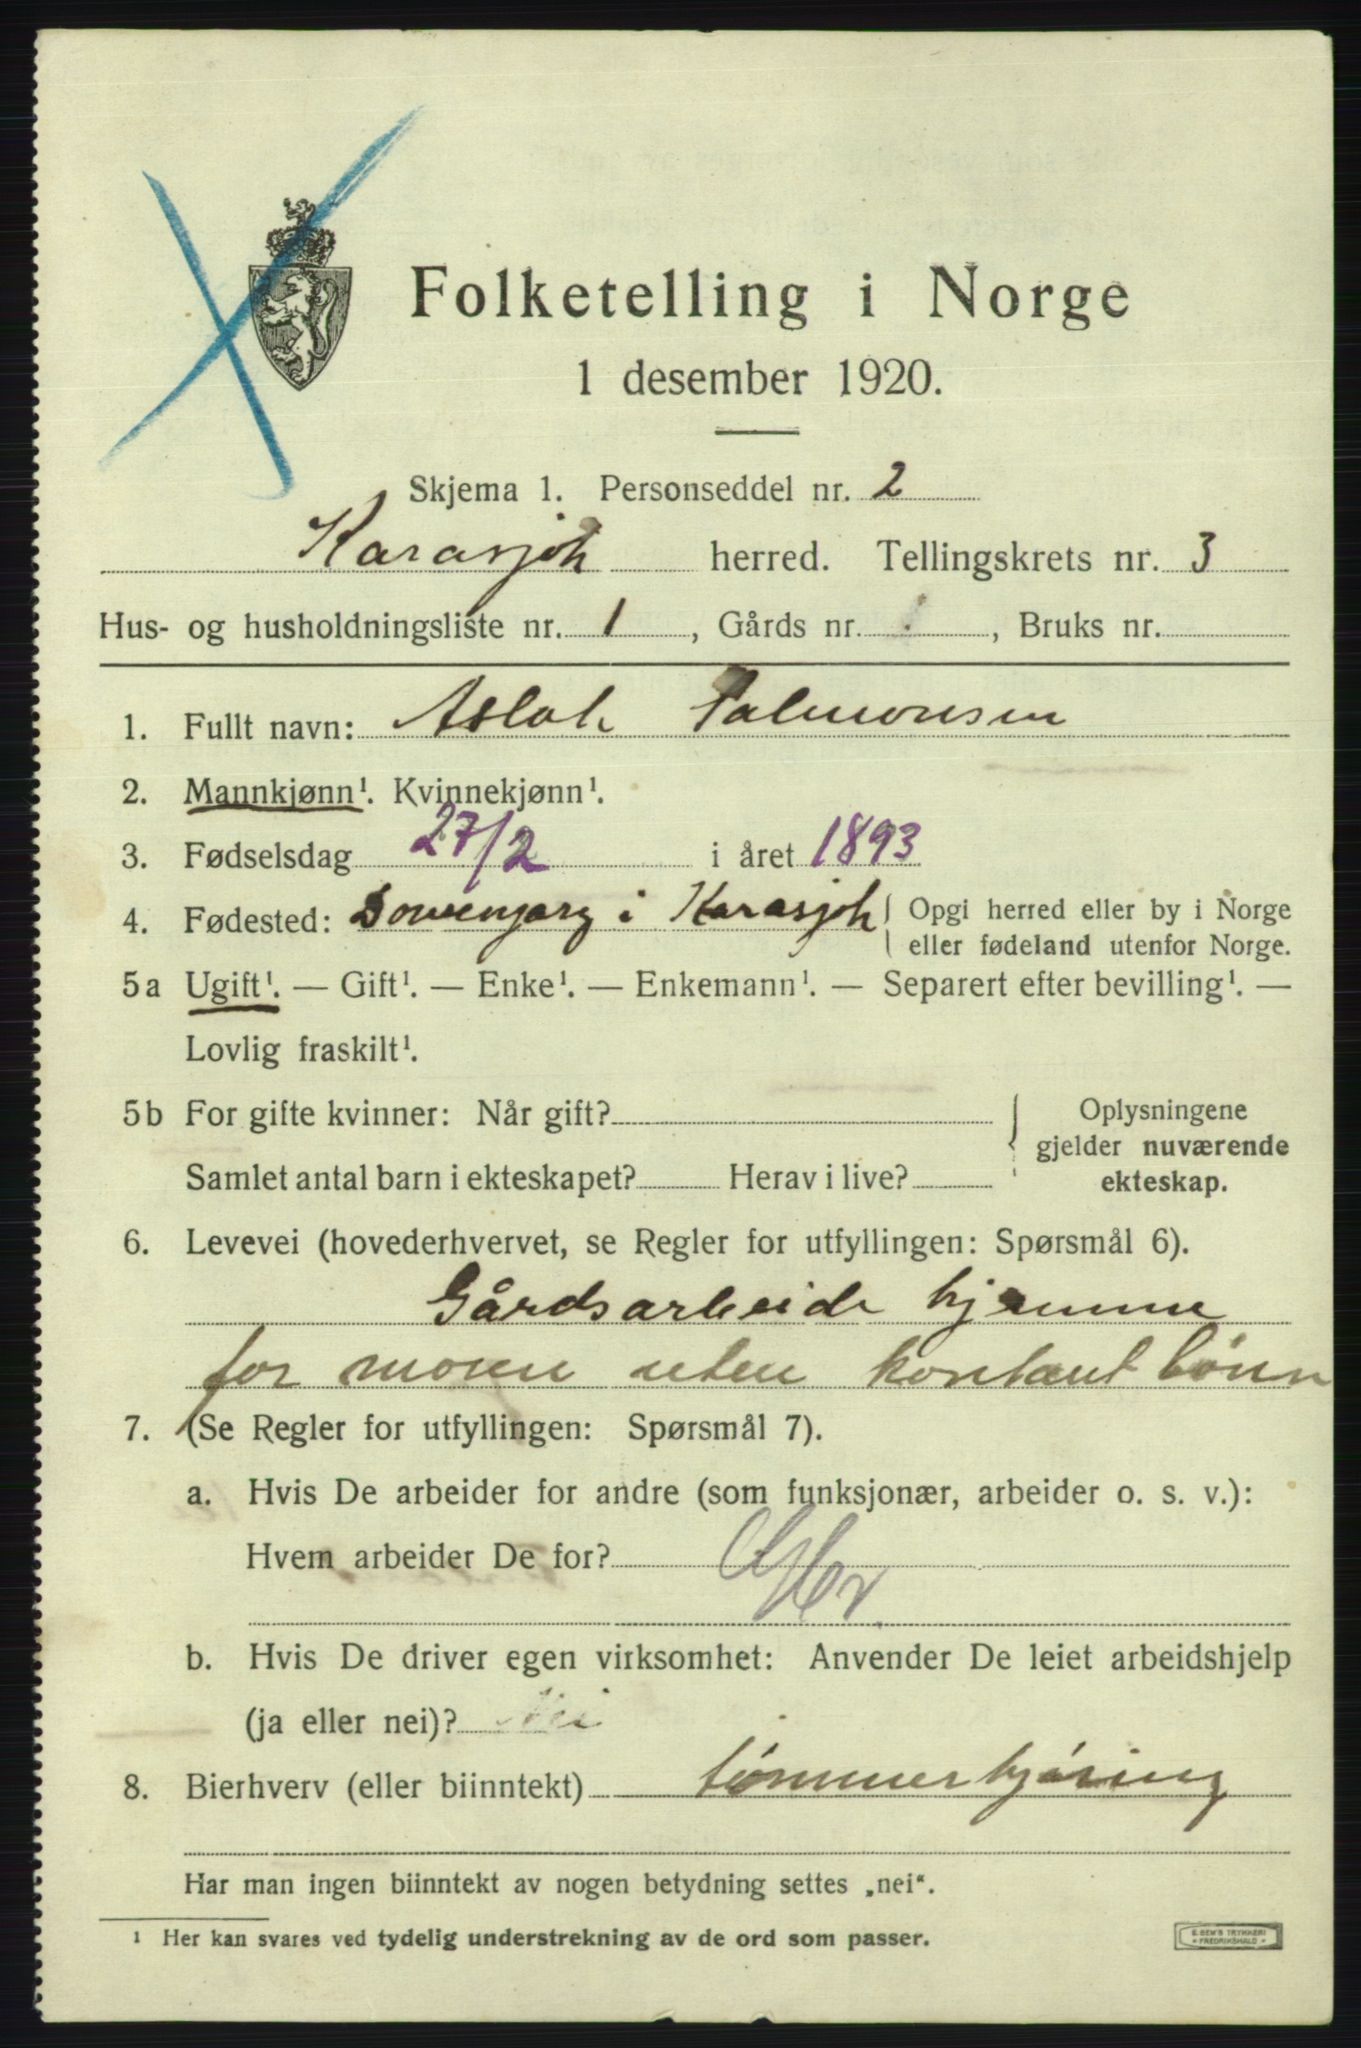 Folketelling i Norge
1 desember 1920.
Skjema 1. Personseddel nr. 2
Karasjok herred. Tellingskrets nr. 3
Hus- og husholdningsliste nr. 1, Gårds nr. , Bruks nr.
1. Fullt navn: Aslak Salmonsen
2. Mannkjønn¹. Kvinnekjønn¹.
3. Fødselsdag 27/2 i året 1893
4. Fødested: i Karasjok { Opgi herred eller by i Norge
eller fødeland utenfor Norge.
5a Ugift¹. — Gift¹. — Enke¹. — Enkemann¹. — Separert efter bevilling¹. —
Lovlig fraskilt¹.
5b For gifte kvinner: Når gift? } Oplysningene
gjelder nuværende
Samlet antal barn i ekteskapet? Herav i live? ekteskap.
6. Levevei (hovederhvervet, se Regler for utfyllingen: Spørsmål 6).
Gårdsarbeide hjemme
for moren uten kontant lønn
7. (Se Regler for utfyllingen: Spørsmål 7).
a. Hvis De arbeider for andre (som funksjonær, arbeider o. s. v.):
Hvem arbeider De for?
b. Hvis De driver egen virksomhet: Anvender De leiet arbeidshjelp
(ja eller nei)? Nei
8. Bierhverv (eller biinntekt) tømmerkjøring
Har man ingen biinntekt av nogen betydning settes „nei“.
¹ Her kan svares ved tydelig understrekning av de ord som passer.
E. SEM'S TRYKKERI
FREDRIKSHALD